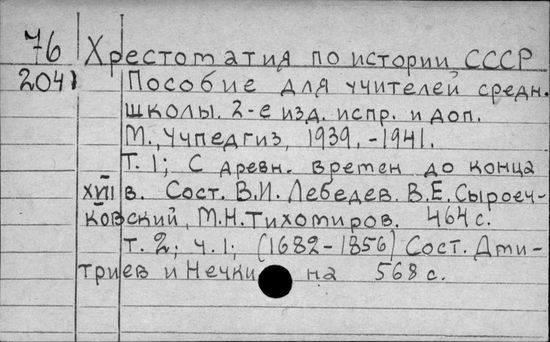 76 Хрестоматия по истории СССР
2041 Пособие для учителей средн.
школы. 2-е изд. испр. и доп.
М., Учпедгиз, 1939.-1941.
Т.1; С древн. времен до конца
XVII в. Сост. В.И. Лебедев. В.Е. Сыроеч-
ковский, М.Н. Тихомиров. 464 с.
Т. 2; ч.1; (1682-1856) Сост. Дми-
триев и Нечкина 568 с.